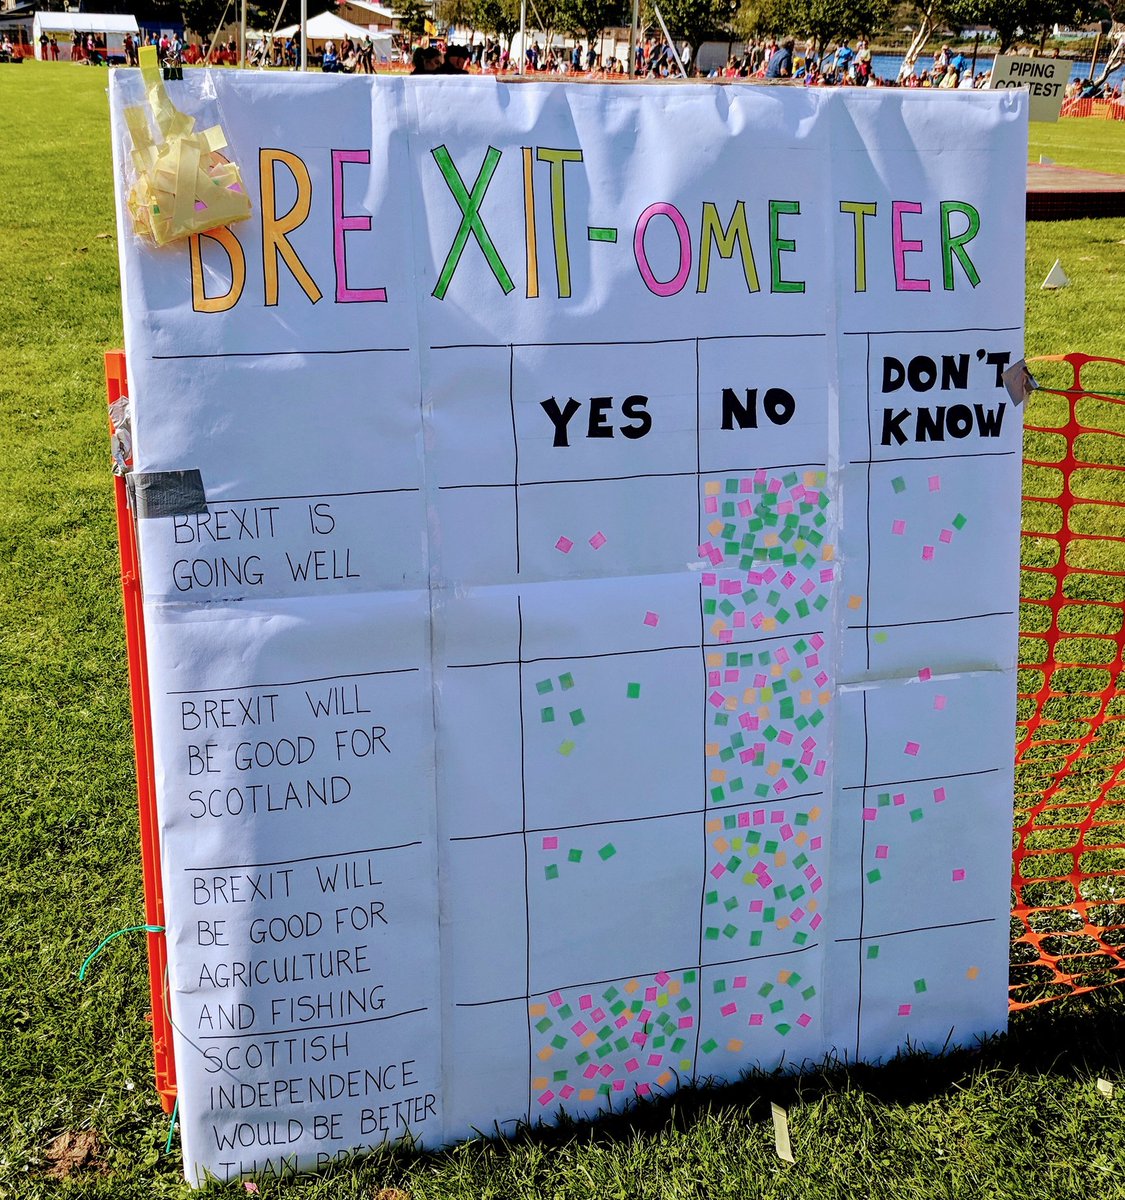 PIPING
CONTEST
BREXIT-OMETER
YES NO DON'T
KNOW
BREXIT IS
GOING WELL
BREXIT WILL
BE GOOD FOR
SCOTLAND
BREXIT WILL
BE GOOD FOR
AGRICULTURE
AND FISHING
SCOTTISH
INDEPENDENCE
WOULD BE BETTER
THAN BREXIT